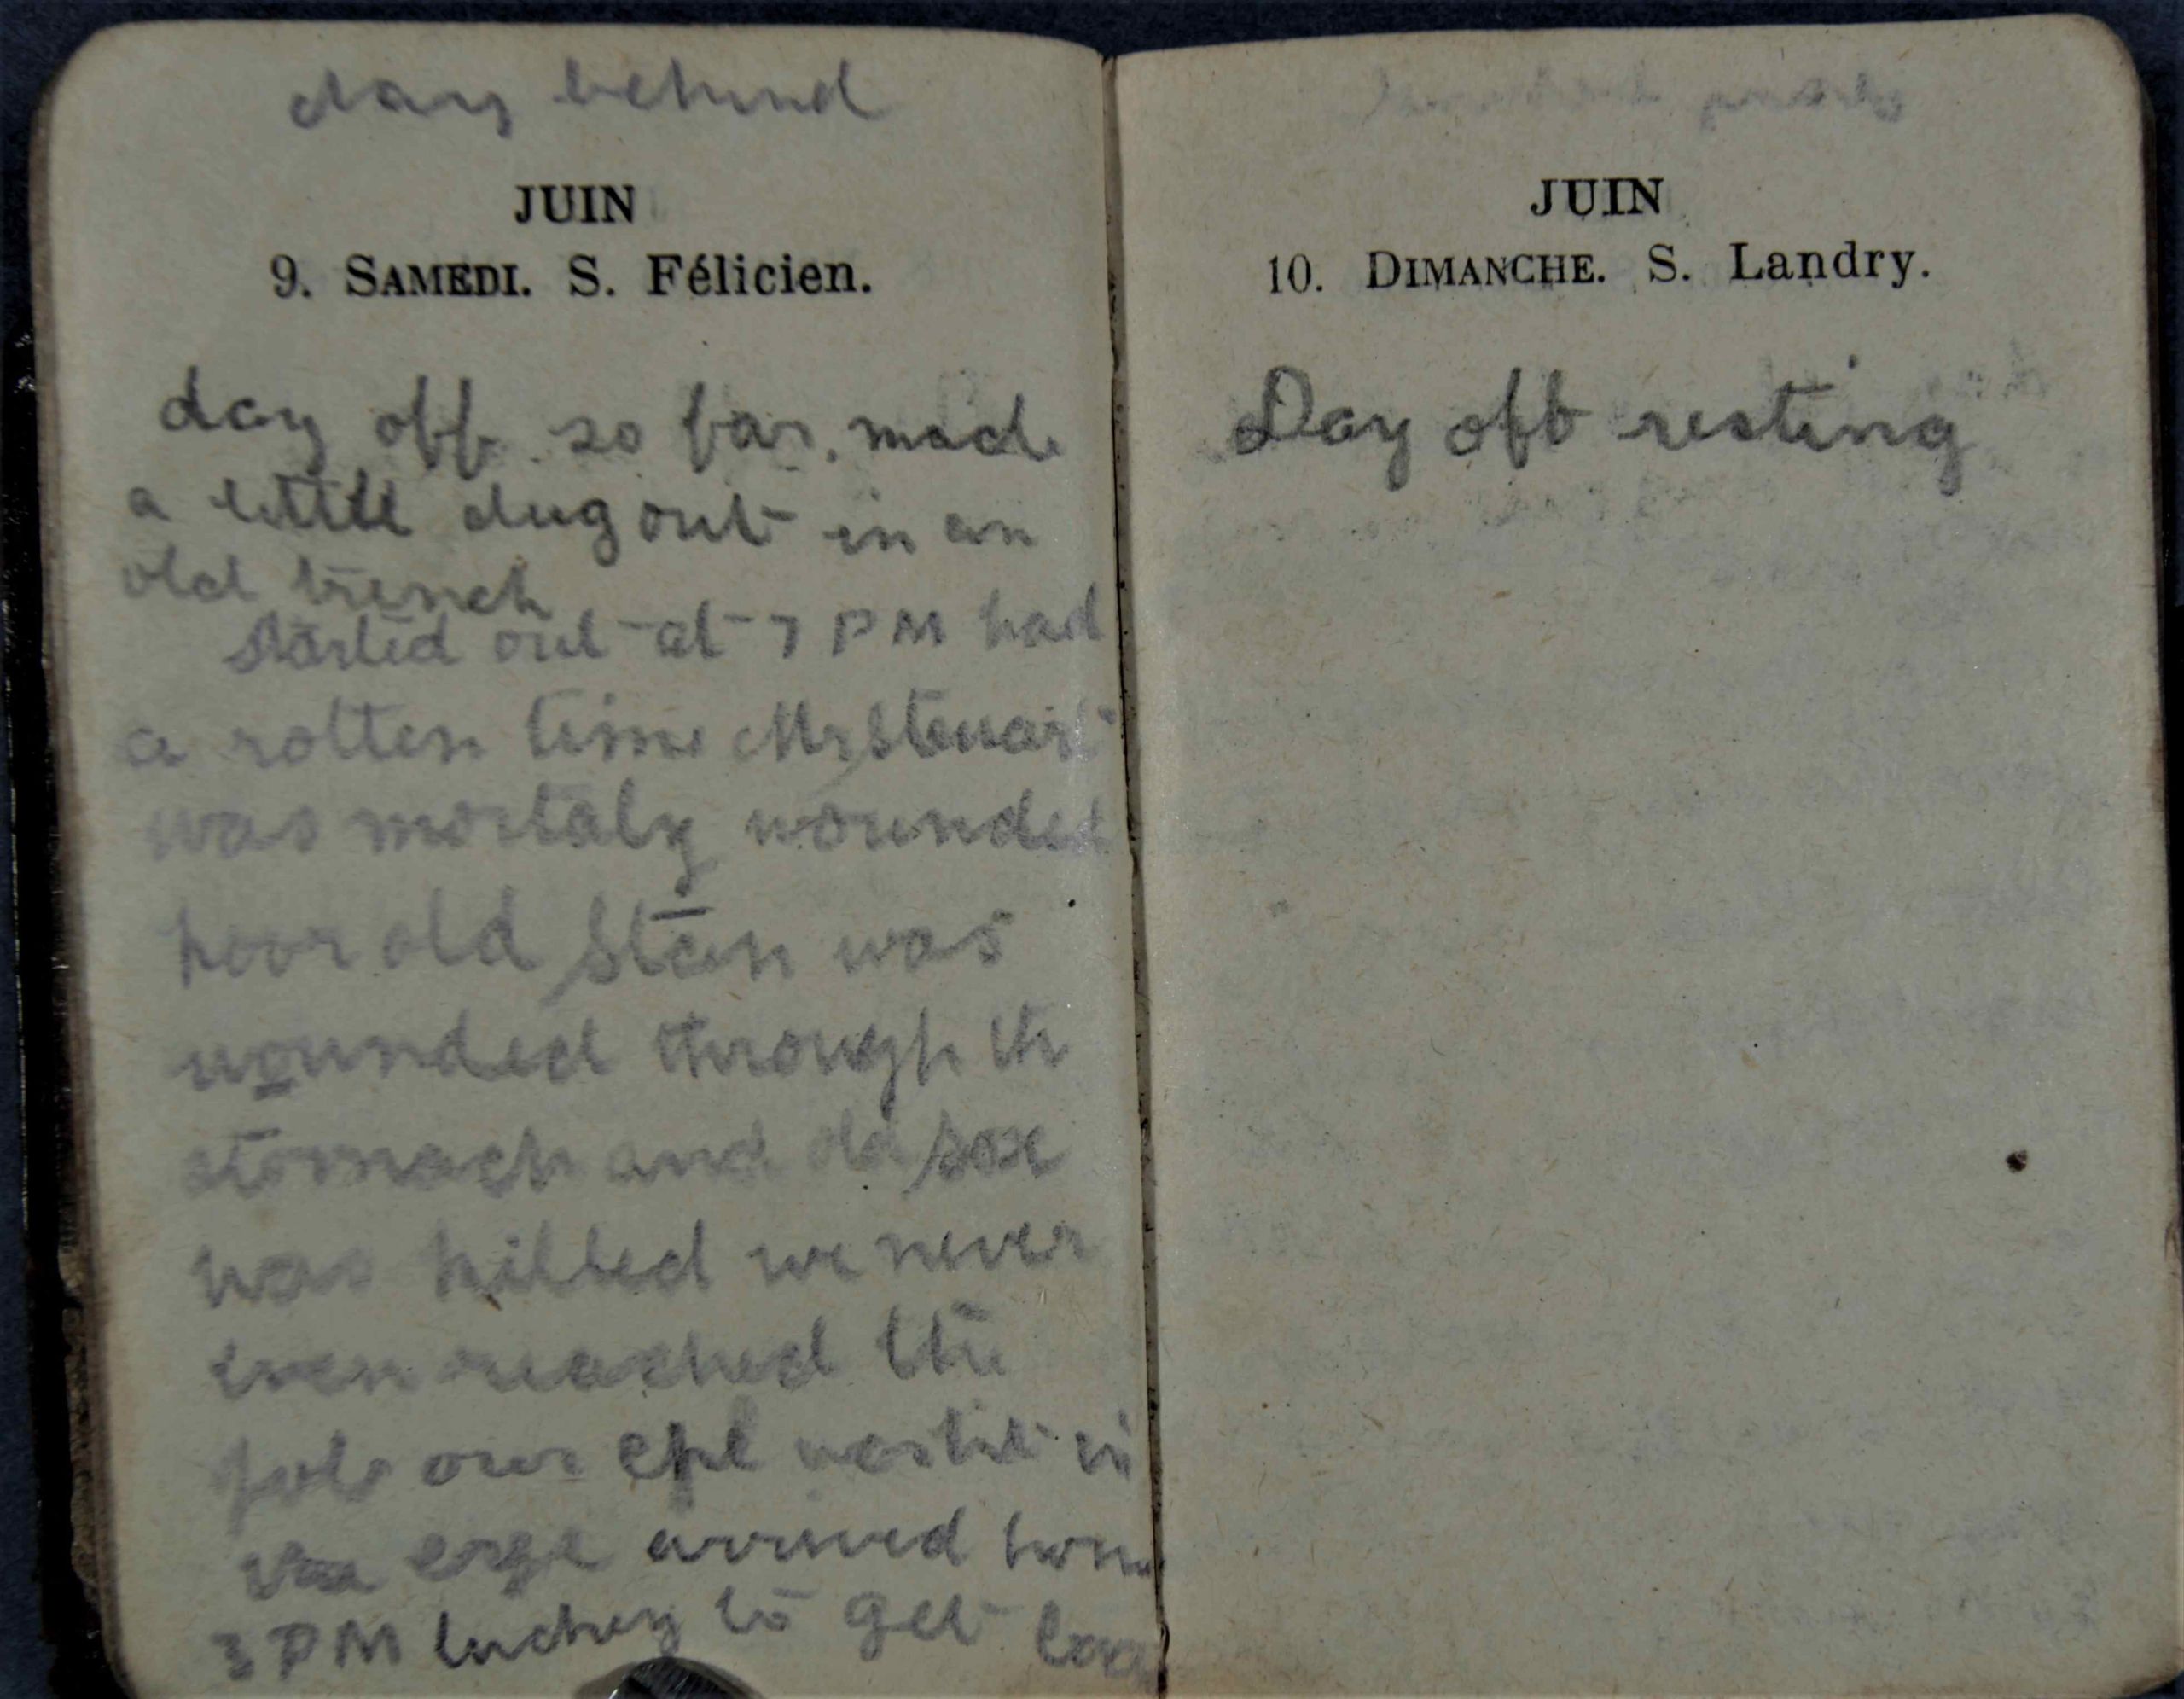 day behind
JUIN
9. SAMEDI. S. Félicien.
day off so far. made
a little dug out in an
old trench
Started out at 7 PM had
a rotten time Mr Stewart
was mortaly wounded
poor old Stan was
wounded through the
stomach and old Sox
was killed we never
even reached the
job our cpl was hit in
the arrived home
3 PM luckey to get
JUIN
10. DIMANCHE. S. Landry.
Day off resting